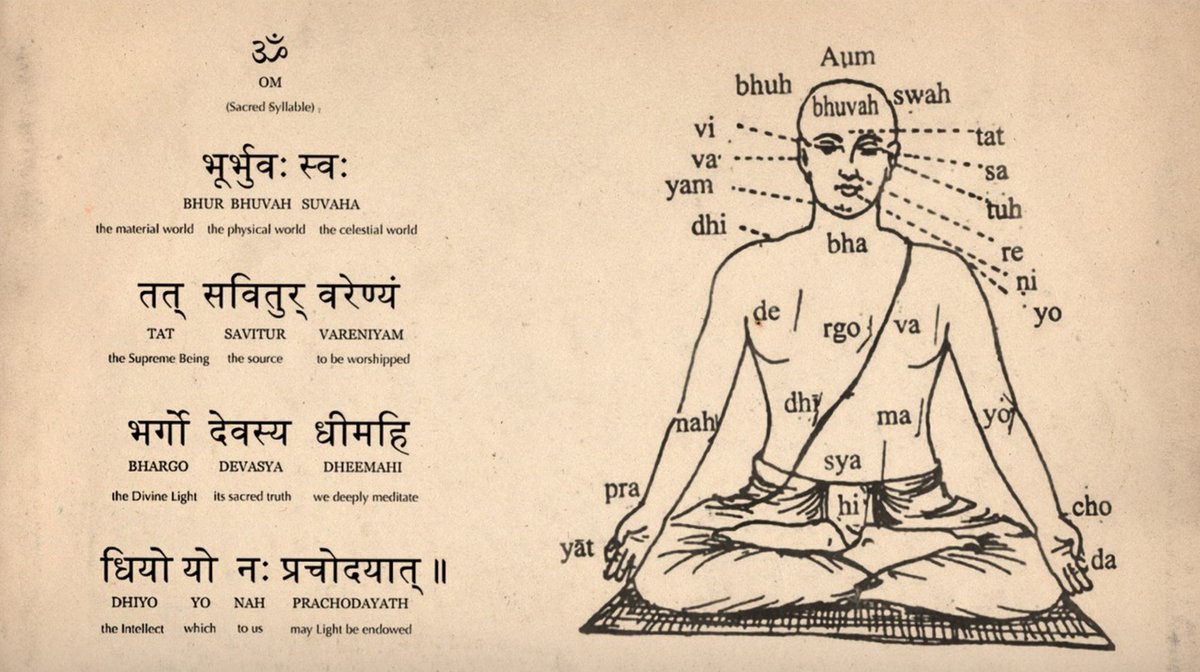 ॐ
OM
(Sacred Syllable)
भूर्भुवः स्वः
BHUR BHUVAH SUVAHA
the material world the physical world the celestial world
तत् सवितुर् वरेण्यं
TAT SAVITUR VARENIYAM
the Supreme Being the source to be worshipped
भर्गो देवस्य धीमहि
BHARGO DEVASYA DHEEMAHI
the Divine Light its sacred truth we deeply meditate
धियो यो नः प्रचोदयात् ॥
DHIYO YO NAH PRACHODAYATH
the Intellect which to us may Light be endowed
Aum
bhuh swah
bhuvah
vi tat
va sa
yam tuh
dhi re
bha
ṇi
yo
de rgo va
dhī ma yo
nah
sya
pra hi cho
yāt da